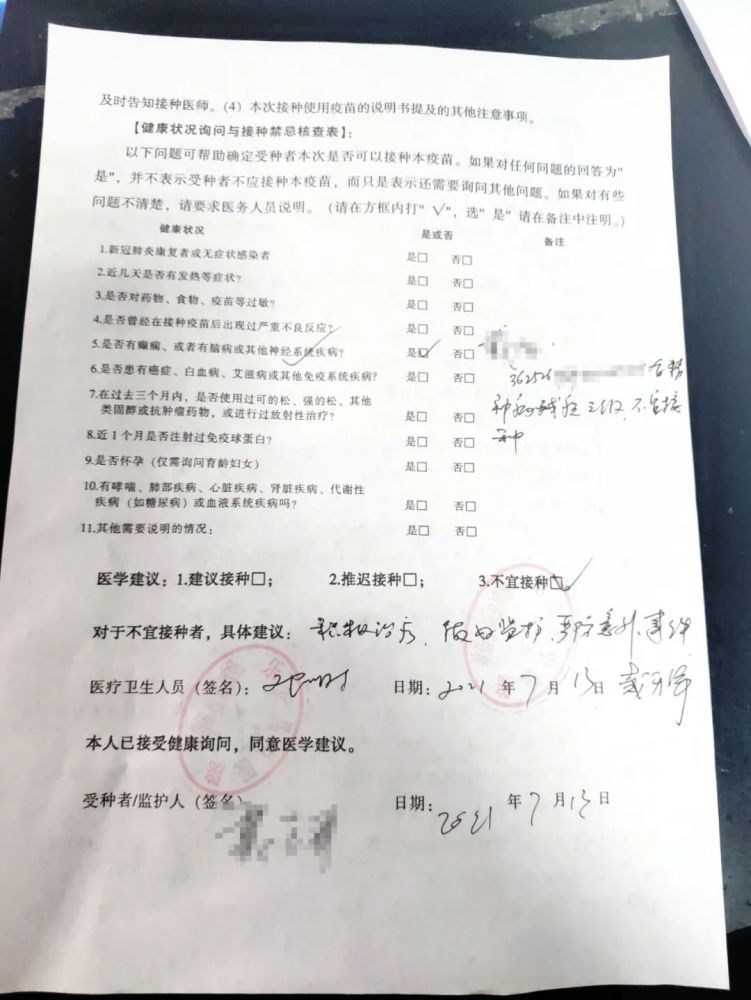 及时告知接种医师。(4) 本次接种使用疫苗的说明书提及的其他注意事项。
【健康状况询问与接种禁忌核查表】:
以下问题可帮助确定受种者本次是否可以接种本疫苗。如果对任何问题的回答为"
是", 并不表示受种者不应接种本疫苗, 而只是表示还需要询问其他问题。如果对有些
问题不清楚, 请要求医务人员说明。(请在方框内打" √", 选" 是" 请在备注中注明。)
健康状况 是或否 备注
1.新冠肺炎康复者或无症状感染者 是□ 否□
2.近几天是否有发热等症状? 是□ 否□
3.是否对药物、食物、疫苗等过敏? 是□ 否□
4.是否曾经在接种疫苗后出现过严重不良反应? 是□ 否□
5.是否有癫痫、或者有脑病或其他神经系统疾病? 是☑ 否□
6.是否患有癌症、白血病、艾滋病或其他免疫系统疾病? 是□ 否□ 362526
7.在过去三个月内, 是否使用过可的松、强的松、其他
类固醇或抗肿瘤药物, 或进行过放射性治疗? 是□ 否□ 残疾三级, 不宜接
种
8.近 1 个月是否注射过免疫球蛋白? 是□ 否□
9.是否怀孕 (仅需询问育龄妇女) 是□ 否□
10.有哮喘、肺部疾病、心脏疾病、肾脏疾病、代谢性
疾病 (如糖尿病) 或血液系统疾病吗? 是□ 否□
11.其他需要说明的情况: 是□ 否□
医学建议: 1.建议接种□; 2.推迟接种□; 3.不宜接种☑。
对于不宜接种者, 具体建议: 积极治疗, 做好监护, 意外事件
医疗卫生人员 (签名): 日期: 2021 年 7 月 13 日
本人已接受健康询问, 同意医学建议。
受种者/监护人 (签名) 日期: 2021 年 7 月 13 日